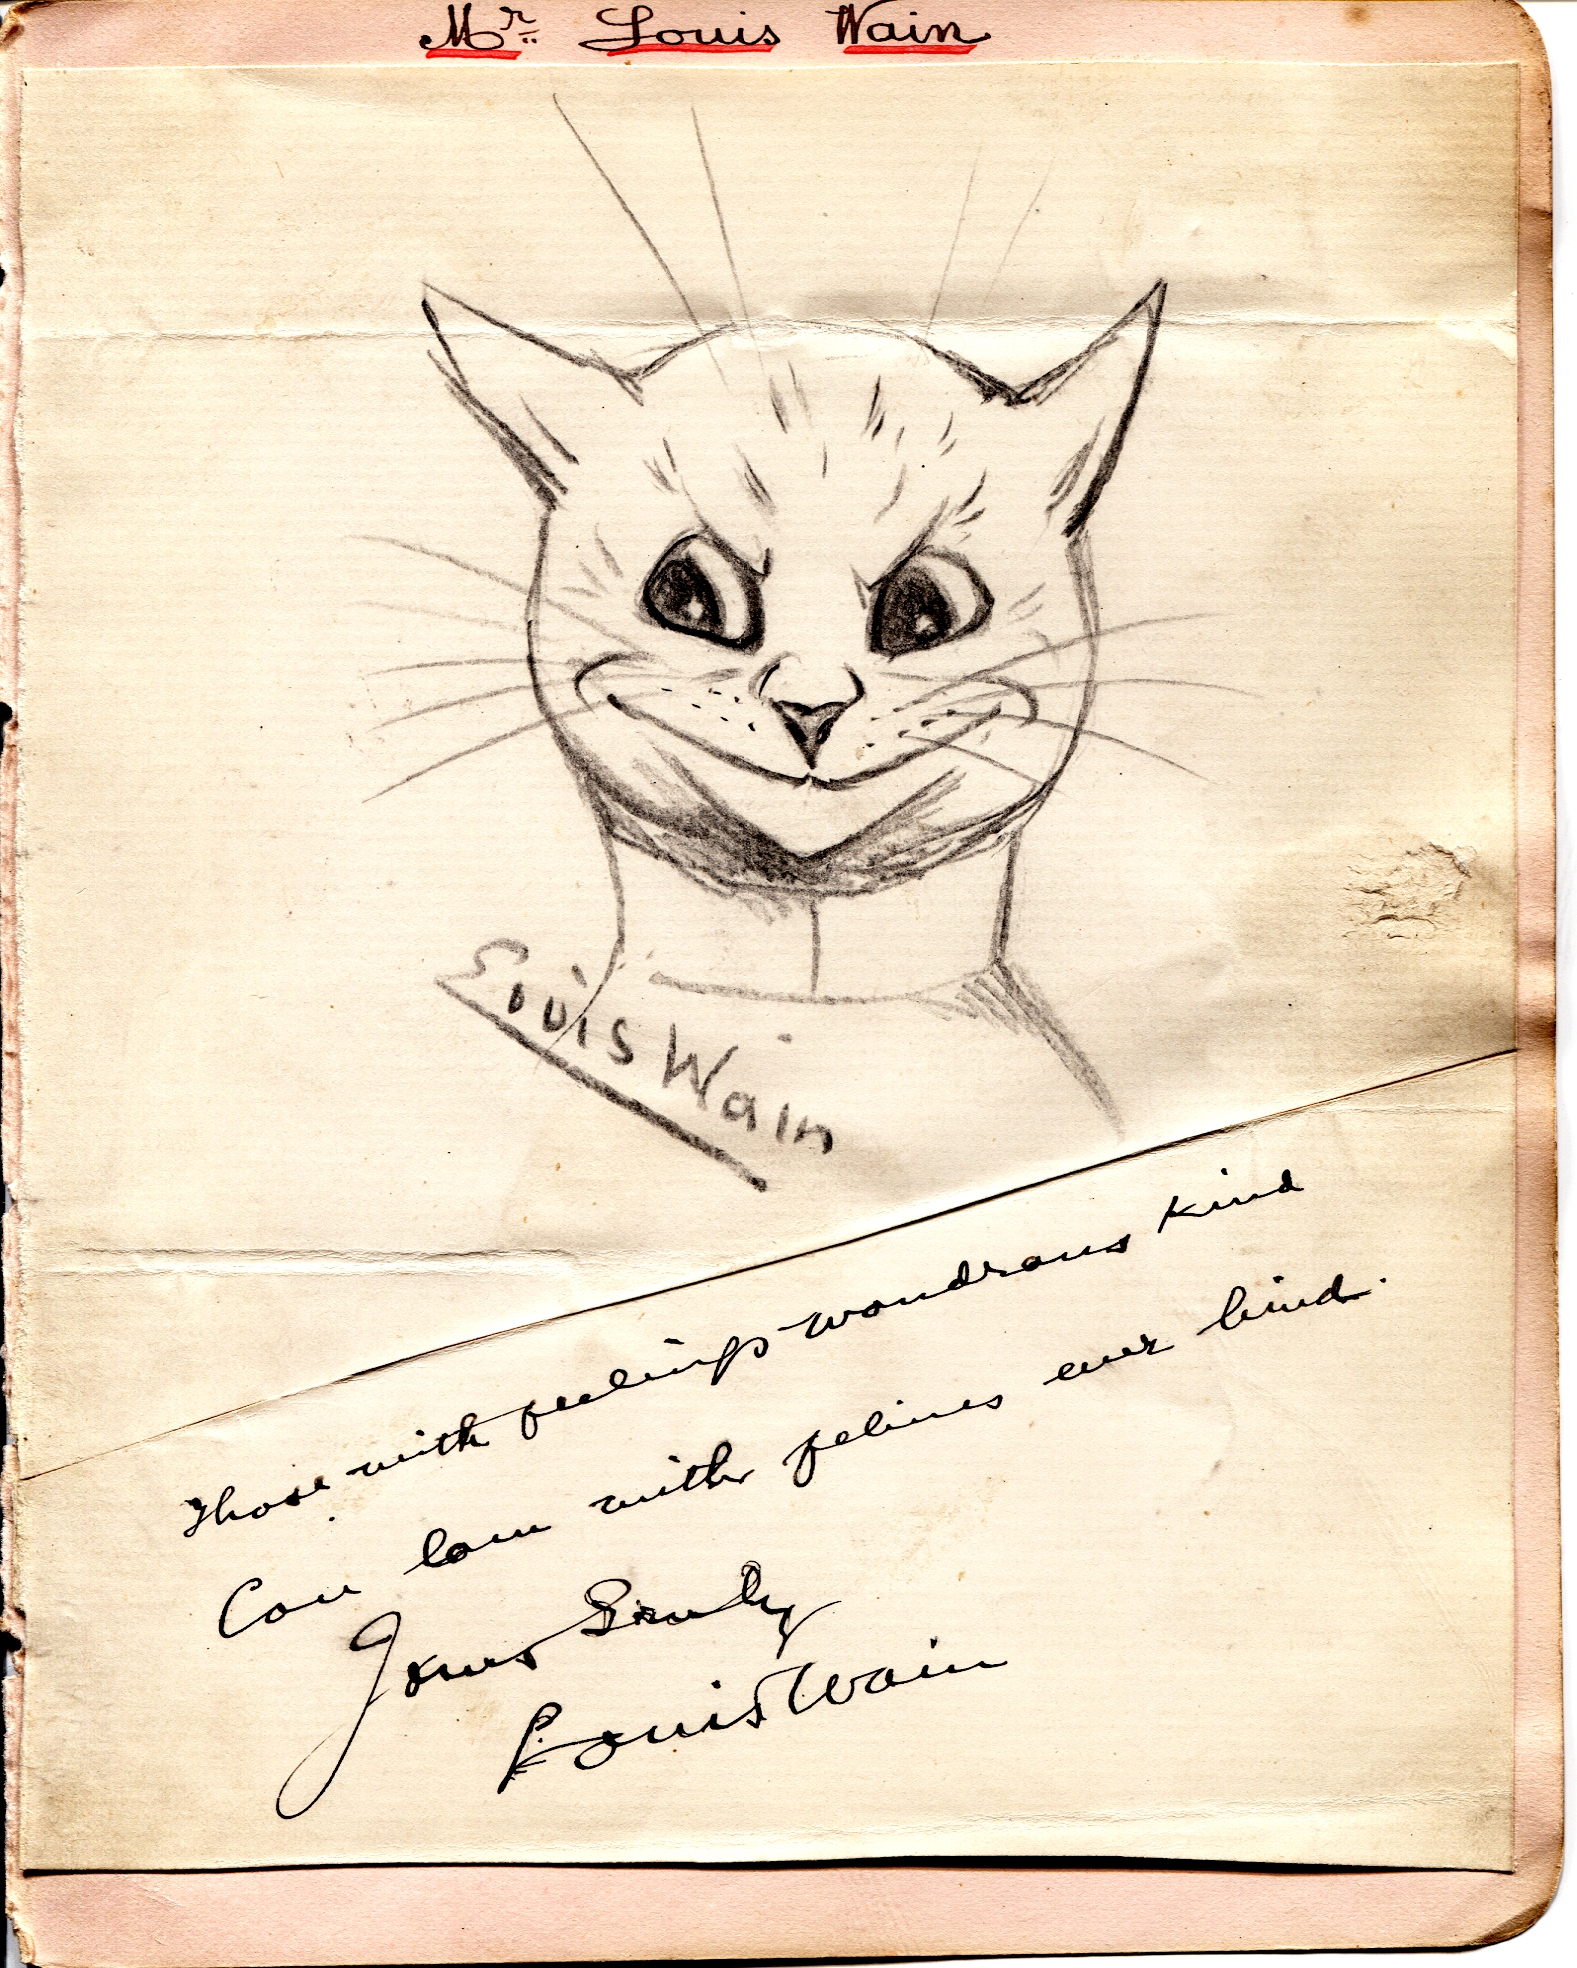 Mr. Louis Wain
Louis Wain
Those with feelings wondrous kind
Can love with felines ever bind.
Yours Truly
Louis Wain